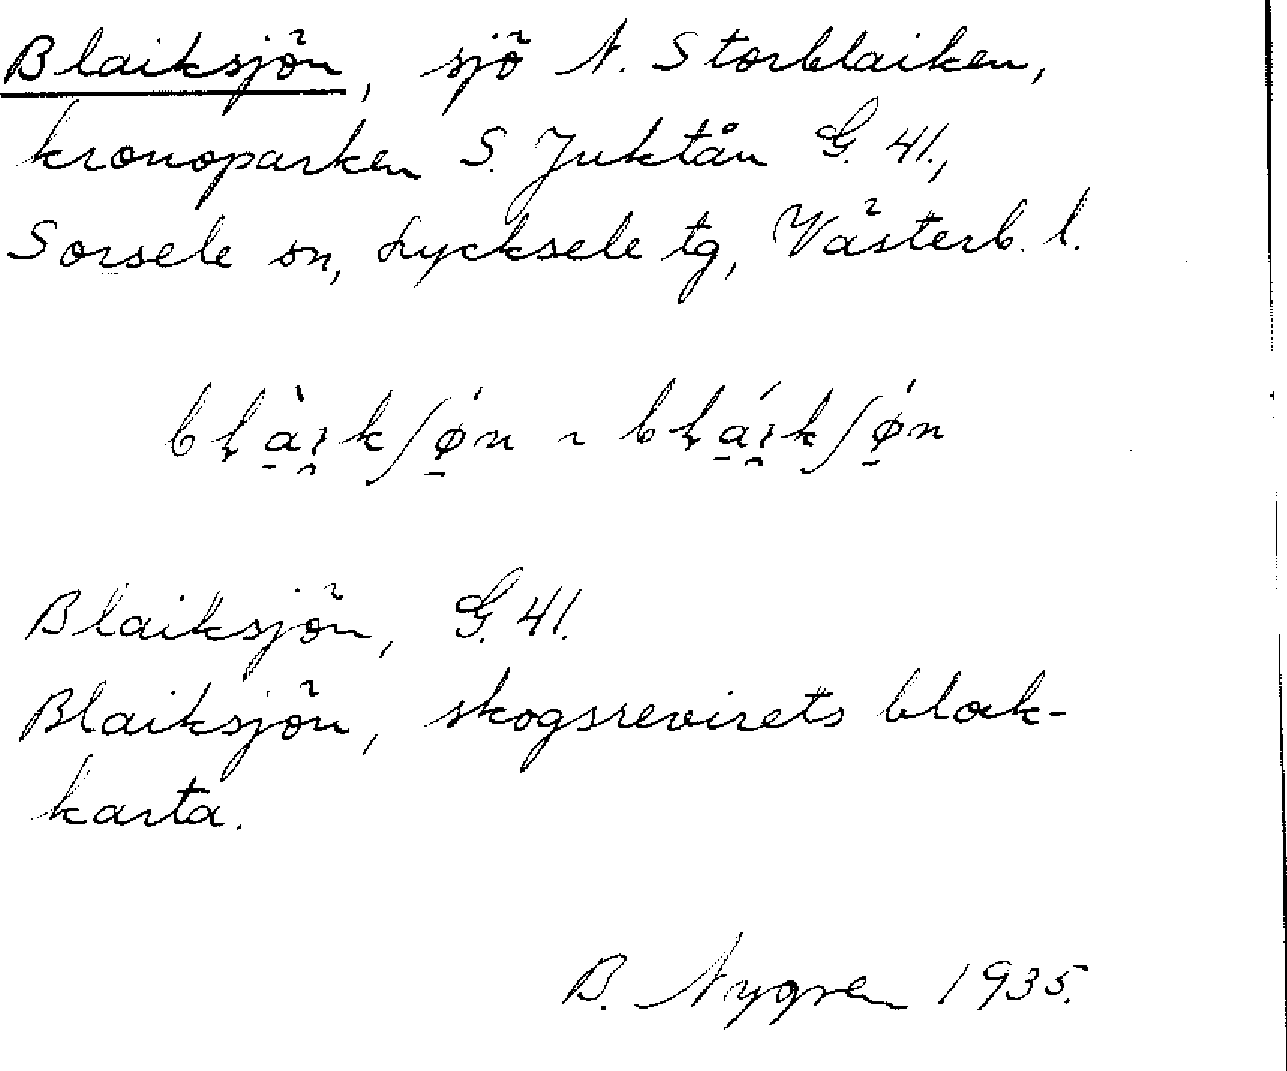 Blaiksjön, sjö N. Storblaiken,
kronoparken S. Juktån G. 41.,
Sorsele sn, Lycksele tg, Västerb. l.
Blaiksjön, G. 41.
Blaiksjön, skogsrevirets block-
karta.
B. Nygren 1935.